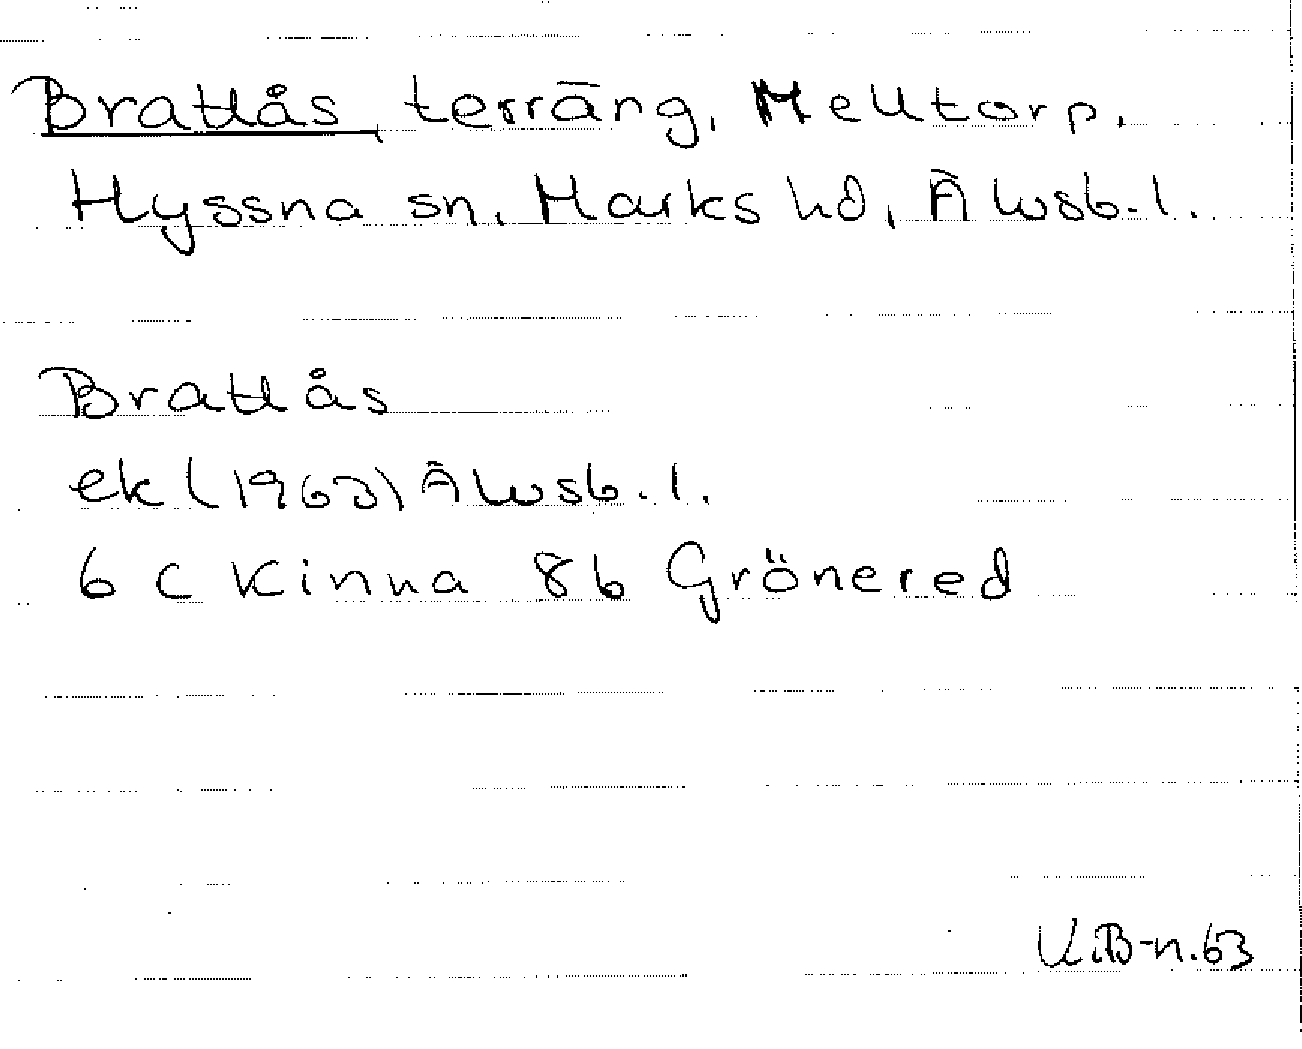 Brattås, terräng, Melltorp,
Hyssna sn, Marks hd, Älvsb. l.
Brattås
ek (1963) Älvsb. l.
6 C Kinna 8b Grönered
K.B-n. 63